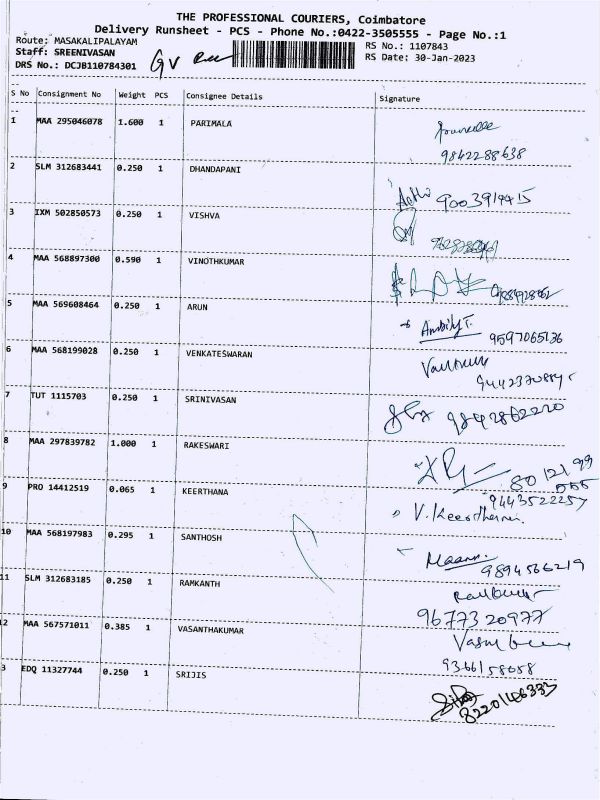 THE PROFESSIONAL COURIERS, Coimbatore
Delivery Runsheet - PCS - Phone No.:0422-3505555 - Page No.:1
Route: MASAKALIPALAYAM RS No.: 1107843
Staff: SREENIVASAN RS Date: 30-Jan-2023
DRS No.: DCJB110784301 GV
S No Consignment No Weight PCS Consignee Details Signature
1 MAA 295046078 1.600 1 PARIMALA
9842288638
2 SLM 312683441 0.250 1 DHANDAPANI
3 IXM 502850573 0.250 1 VISHVA
4 MAA 568897300 0.590 1 VINOTHKUMAR
5 MAA 569608464 0.250 1 ARUN
9597065136
6 MAA 568199028 0.250 1 VENKATESWARAN
7 TUT 1115703 0.250 1 SRINIVASAN
9842862220
8 MAA 297839782 1.000 1 RAKESWARI
80 12199
555
9443522257
9 PRO 14412519 0.065 1 KEERTHANA V. Keerthana
10 MAA 568197983 0.295 1 SANTHOSH
9894566219
11 SLM 312683185 0.250 1 RAMKANTH
9677320977
2 MAA 567571011 0.385 1 VASANTHAKUMAR
9366158058
3 EDQ 11327744 0.250 1 SRIJIS
8220146333